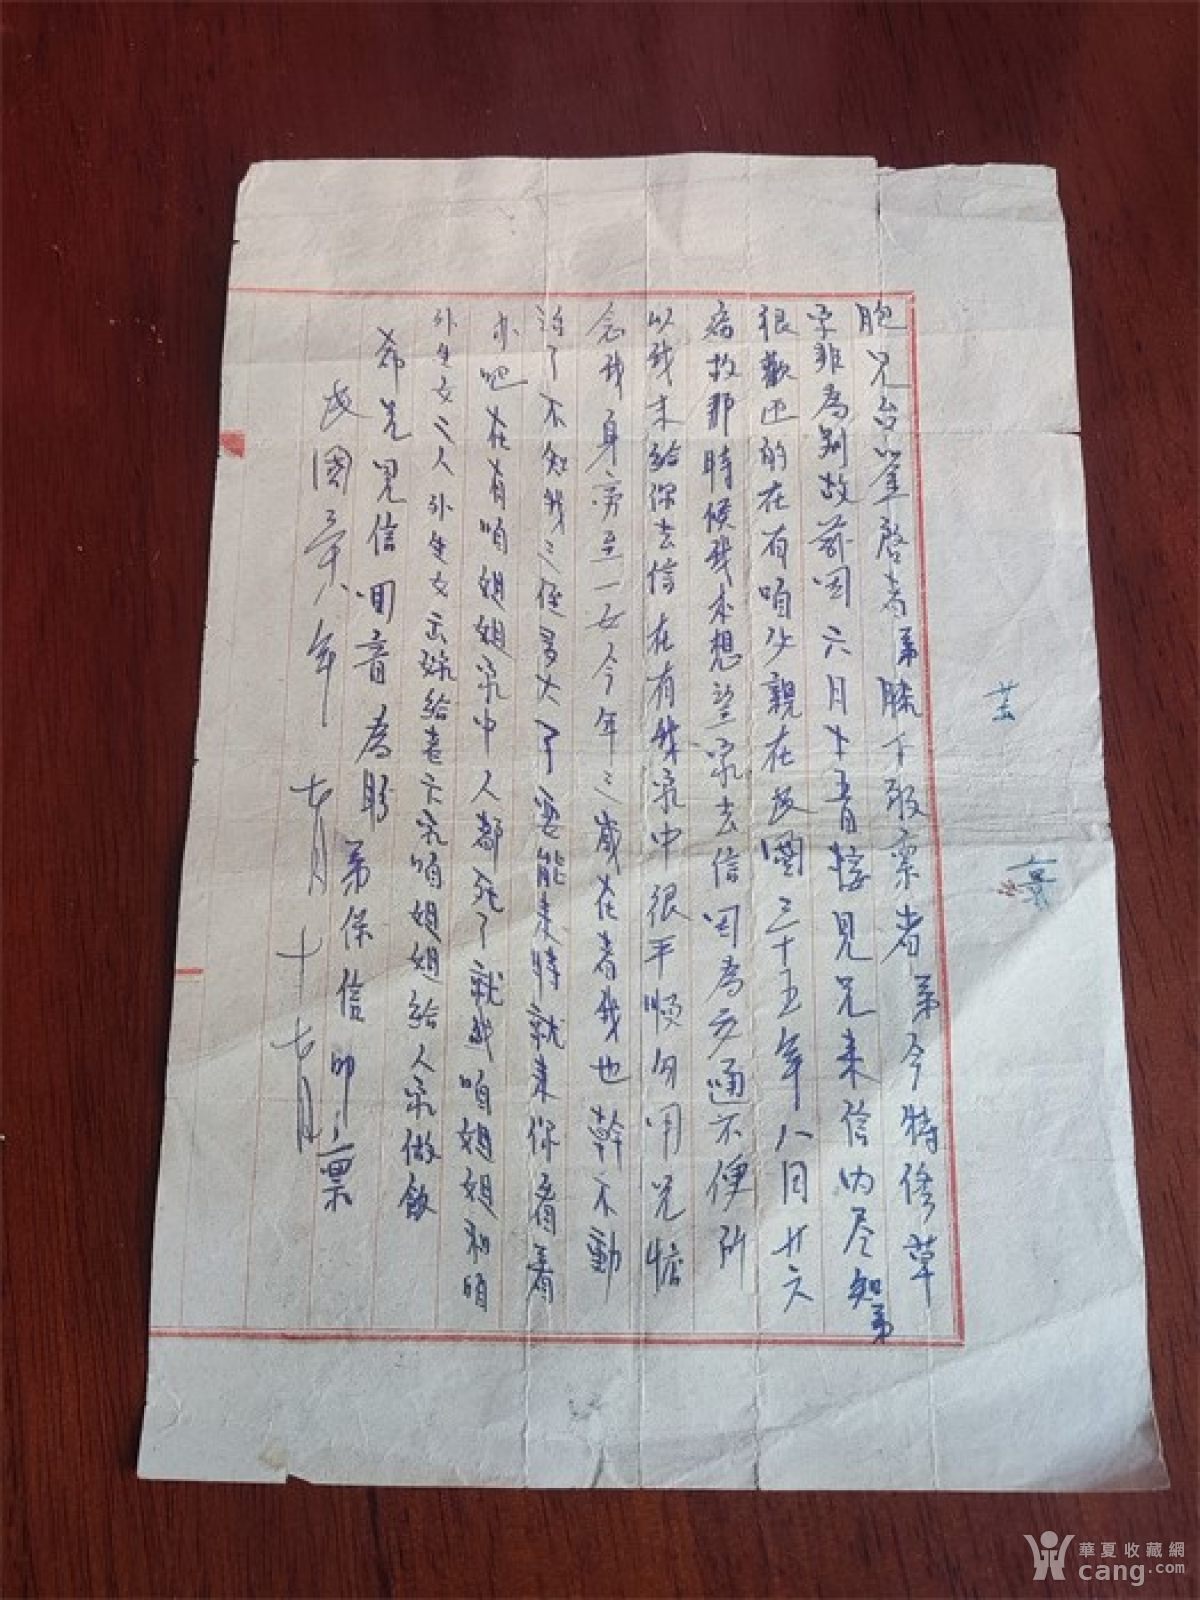 胞兄台鑒啓者弟膝下敬禀者弟今特修草
字非為別故前因六月十五日接見兄来信内尽知弟
很歡迎的在有咱父親在民國三十五年八月廿六
病故那時候我本想望家去信因為交通不便所
以我未給你去信在有我家中很平順勿用兄惦
念我身旁至一女今年三歲在者我也幹不動
活了不知我三侄多大了要能来時就来你看着
办吧在有咱姐姐家中人都死了就我咱姐姐和咱
外生女二人外生女去給老六家咱姐姐給人家做飯
希兄見信回音為盼弟保信叩禀
民國卅八年七月十七日
芸
禀
華夏收藏網
cang.com